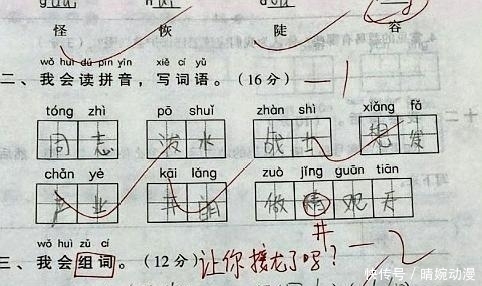 怪 恢 陡 容
wǒ huì dú pīn yīn xiě cí yǔ
二、我会读拼音，写词语。（16分） —1
tóng zhì pō shuǐ zhàn shì xiǎng fǎ
同志 泼水 战士 想发
chǎn yè kāi lǎng zuò jǐng guān tiān
产业 开朗 做情观天
井
wǒ huì zǔ cí
三、我会组词。（12分）让你接龙了吗？—2
快传号 / 晴婉动漫